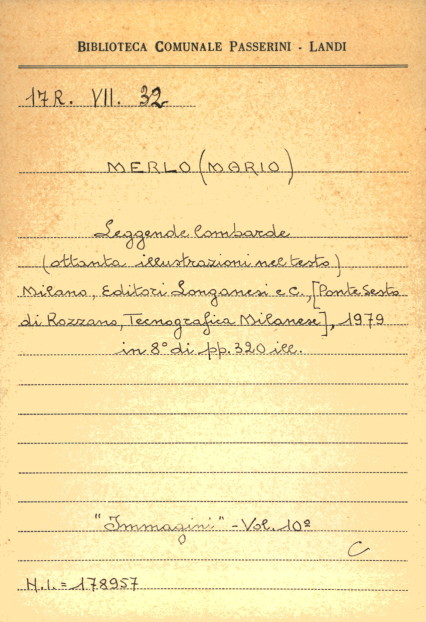 BIBLIOTECA COMUNALE PASSERINI - LANDI
17R. VII. 32
MERLO (MARIO)
Leggende lombarde
(ottanta illustrazioni nel testo)
Milano, Editori Longanesi e C., [Ponte Sesto
di Rozzano, Tecnografica Milanese], 1979
in 8° di pp. 320 ill.
"Immagini" - Vol. 10º
C
N.I. = 178957